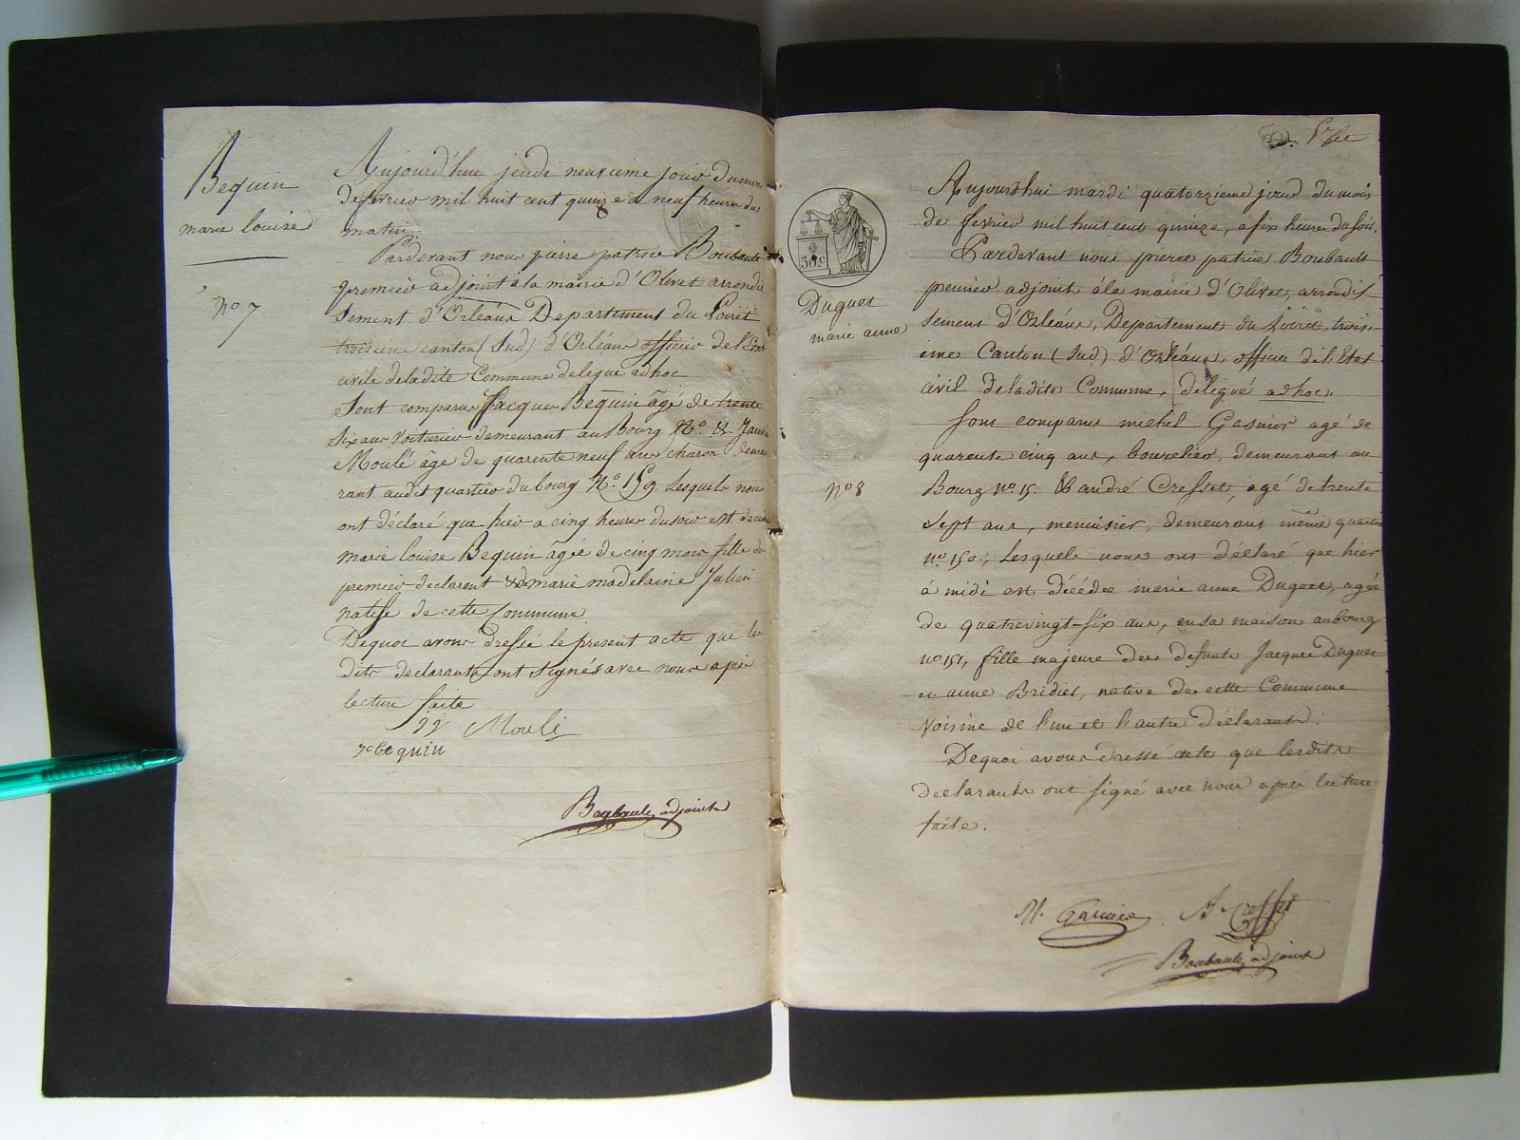 Bequin
marie louise
No 7
Aujourd'hui jeudi neuvieme jour du mois
de fevrier mil huit cent quinze à neuf heures du
matin
Pardevant nous pierre patrice Boubault
premier adjoint à la mairie d'Olivet arrondis
sement d'Orléans Departement du Loiret
troisieme canton (Sud) d'Orléans officier de l'Etat
civile de ladite Commune delegué ad hoc
Sont comparus Jacques Bequin âgé de trente
six ans Voiturier demeurant au bourg No
Moulé âgé de quarente neuf ans charon demeu
rant audit quartier du bourg No 159 Lesquels nous
ont déclaré que hier a cinq heures du soir est
marie louise Bequin âgée de cinq mois fille du
premier declarent & de marie madelaine Julien
native de cette Commune
Dequoi avons dressé le present acte que les
dits declarants ont signés avec nous après
lecture faite
Moulé
Bequin
Boubault adjoint
2. 
Duguet
marie anne
No 8
Aujourd'hui mardi quatorzieme jour du mois
de fevrier mil huit cent quinze, a six heures du soir.
Pardevant nous pierre patrice Boubault
premier adjoint à la mairie d'Olivet, arrondis-
sement d'Orléans, Departement du Loiret, trois-
ieme Canton (Sud) d'Orléans, officier de l'Etat
civil de ladite Commune, délegué ad hoc.
Sont comparus michel agé de
quarente cinq ans, bourelier, demeurant au
Bourg no 15. & andré Cresset, agé de trente
sept ans, menuisier, demeurans même quartier
no 150, Lesquels nous ont déclaré que hier
à midi est décédée marie anne Duguet, agée
de quatrevingt-six ans, en sa maison au bourg
no 151, fille majeure des defunts Jacques Duguet
et anne Bridier, native de cette Commune
Voisine de l'un et l'autre déclarants.
Dequoi avons dressé acte que lesdits
declarants ont signé avec nous après lecture
faite.
M. Garnier
A. Cresset
Boubault adjoint